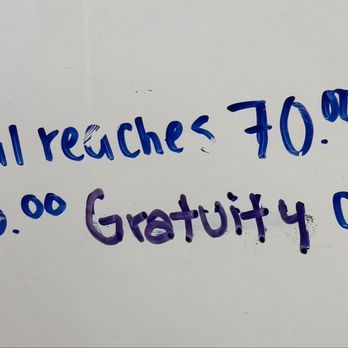 reaches 70.00
.00 Gratuity